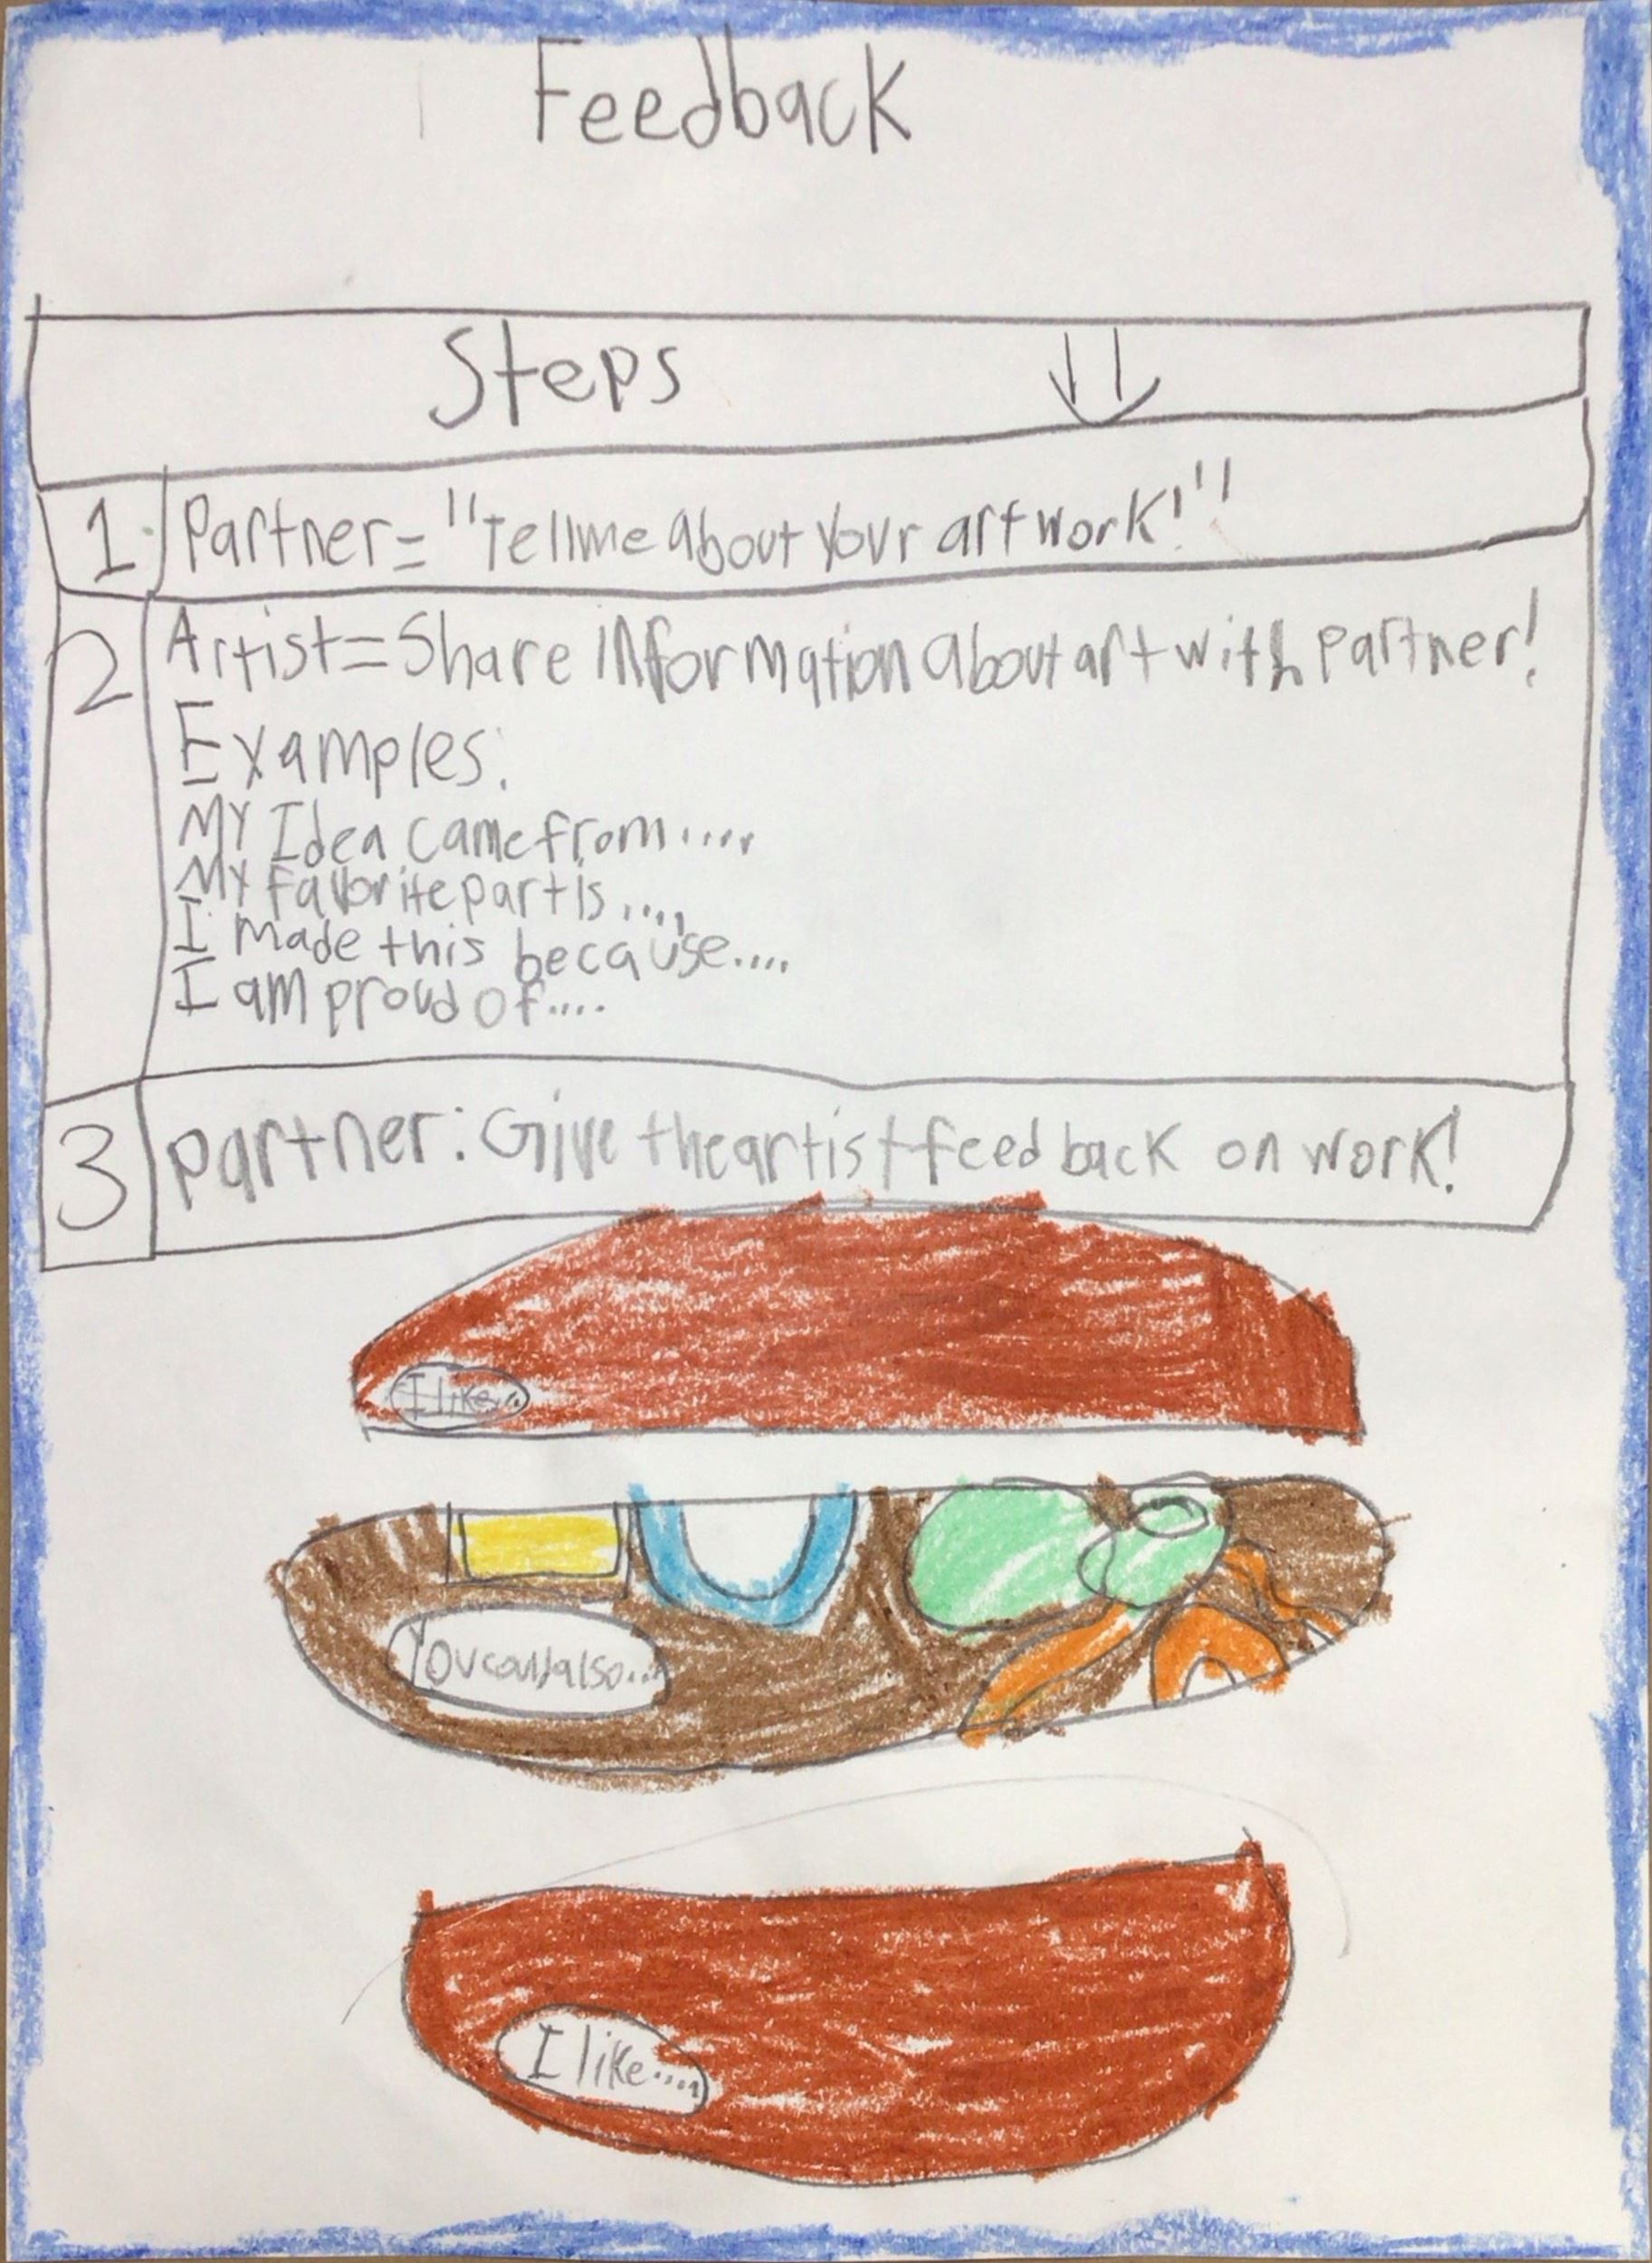 Feedback
Steps
1 Partner= "Tell me about your artwork!"
2 Artist=Share information about art with partner!
Examples:
My Idea came from....
My favorite part is....
I made this because....
I am proud of....
3 partner: Give the artist feedback on work!
I like...
You could also...
I like....